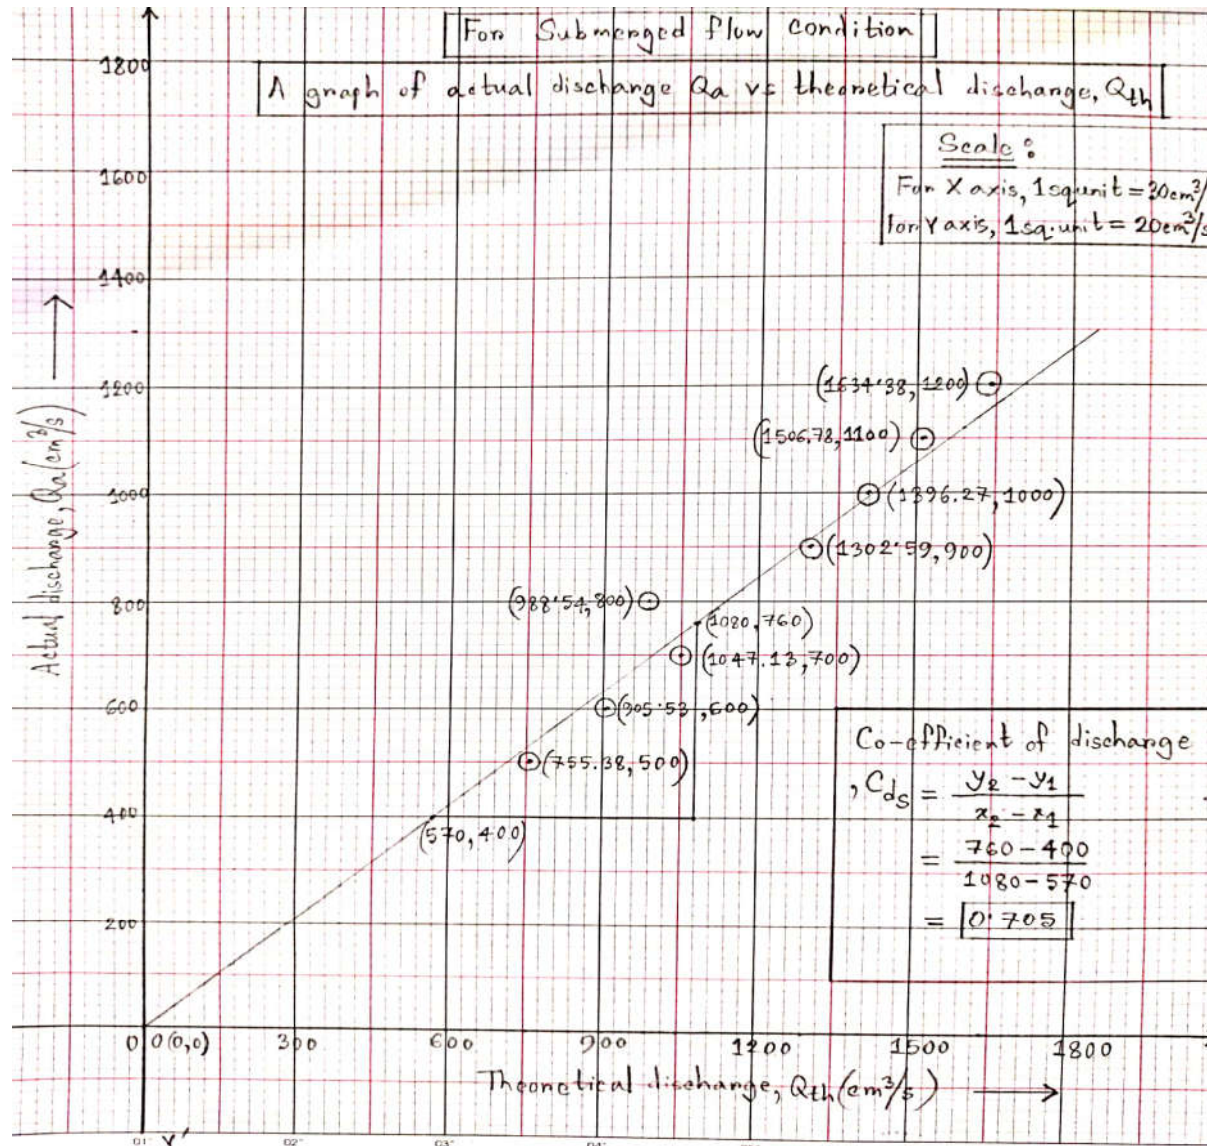 For Submerged flow condition
A graph of actual discharge Qa vs theoretical discharge, Qth
Scale:
For X axis, 1 sq unit = 30 cm³/
for Y axis, 1 sq. unit = 20 cm³/s
1800
1600
1400
1200
1000
800
600
400
200
Actual discharge, Qa (cm³/s)
(1634.38, 1200)
(1506.78, 1100)
(1396.27, 1000)
(1302.59, 900)
(988.54, 800)
(1080, 760)
(1047.13, 700)
(905.53, 600)
(755.38, 500)
(570, 400)
Co-efficient of discharge
, Cds = y₂ - y₁ / x₂ - x₁
= 760 - 400 / 1080 - 570
= 0.705
0 0 (0,0) 300 600 900 1200 1500 1800
Theoretical discharge, Qth (cm³/s)
01" Y' 02" 03"